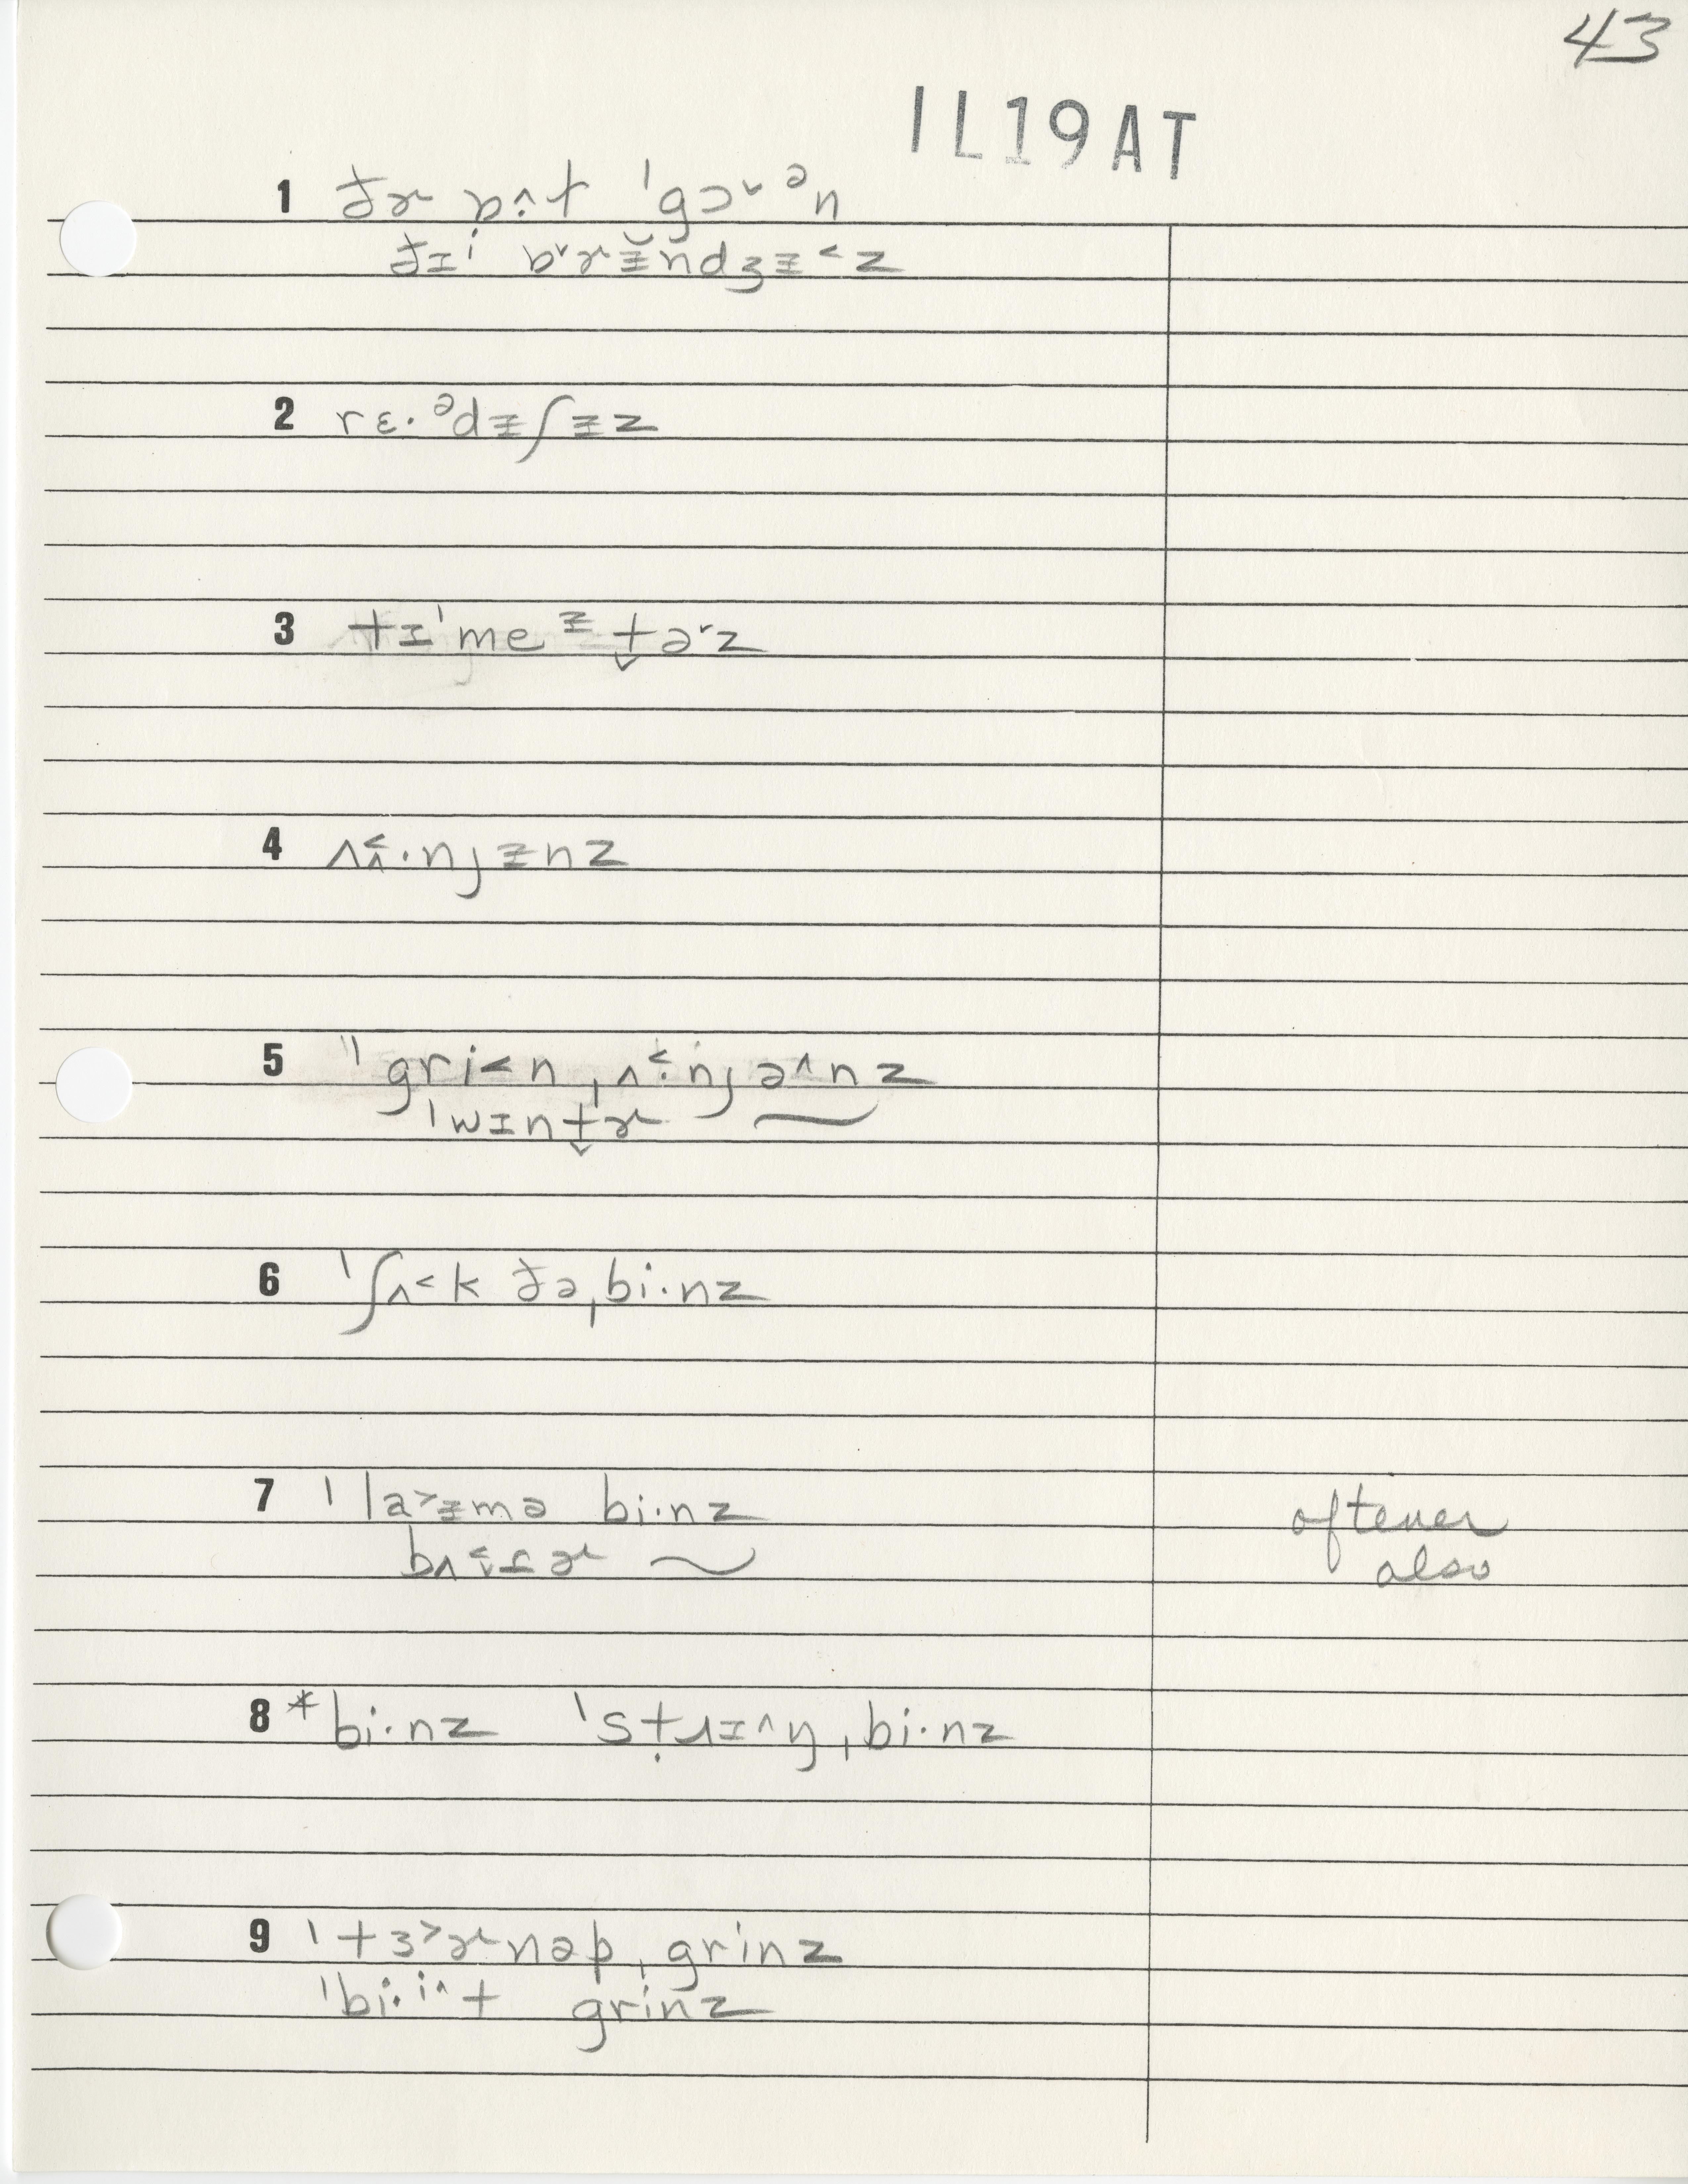 43
IL19AT
1 ðɚ ɒˑt ˈgɔ˅ ᵊn
ðɪⁱ ɒ˅ɚᵻ̆ndʒᵻ˂z
2 rɛ·ᵊdᵻʃᵻz
3 tɪˈmeᵻt̬ə˞z
4 ʌ˂·njᵻnz
5 ˈˈgri˂n ˌʌ˂·njə^nz
ˈwɪnt̬ɚ ~
6 ˈʃʌ˂k ðəˌbi·nz
7 ˈla˃ᵻmə bi·nz oftener
bʌtɚ ~ also
8 *bi·nz ˈstɹɪ^ŋˌbi·nz
9 ˈtɜ˃ɚnəpˌgrinz
ˈbi·ⁱ^t grinz